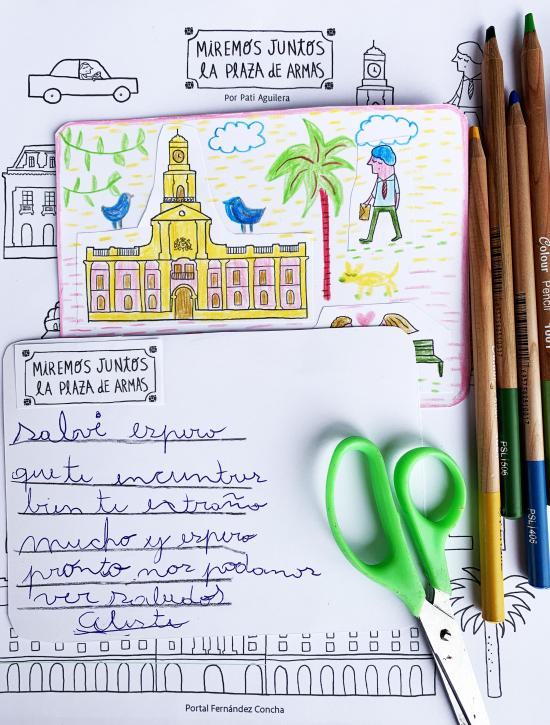 MIREMOS JUNTOS
LA PLAZA DE ARMAS
Por Pati Aguilera
MIREMOS JUNTOS
LA PLAZA DE ARMAS
salvi espero
que te encuntres
bien te extraño
mucho y espero
pronto nos podamos
ver saludos
Celeste
Colour Pencil 1001
PSL1505
PSL1405
Portal Fernández Concha